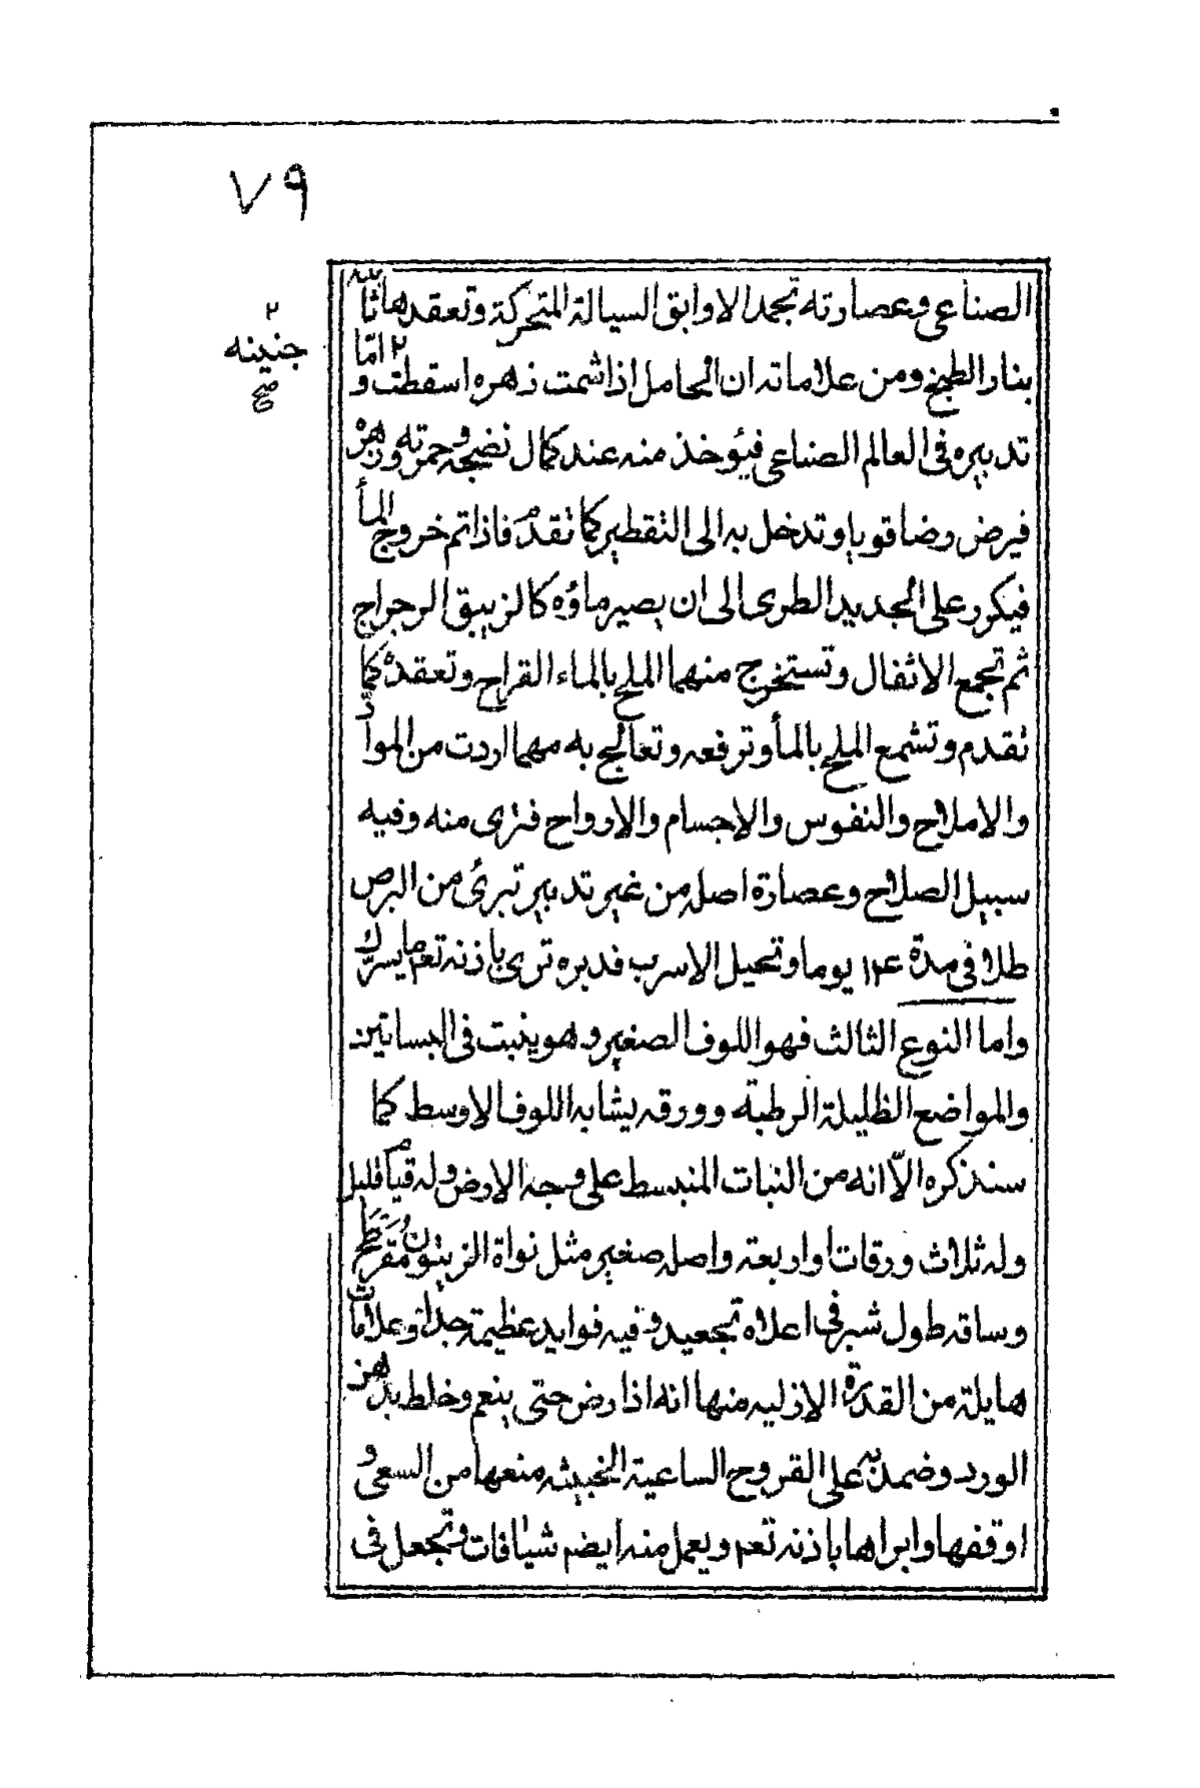 ٧٩
الصناعى وعصارته تجمد الاوابق السيالة المتحركة وتعقدها ثابتة
بنار الطبخ ومن علاماته ان الحامل اذا شمت زهره اسقطت ٢ واما
تدبيره فى العالم الصناعى فيؤخذ منه عند كمال نضجه وحمرته وزهره
فيرض رضا قويا وتدخل به الى التقطير كما تقدم فاذا تم خروج المأ
فيكرر على الجديد الطرى الى ان يصير ماؤه كالزيبق الرجراج
ثم تجمع الاثفال وتستخرج منهما الملح بالماء القراح وتعقده كما
تقدم وتشمع الملح بالمأ وترفعه وتعالج به مهما اردت من المواد
والاملاح والنفوس والاجسام والارواح فترى منه وفيه
سبيل الصلاح وعصارة اصله من غير تدبير تبرئ من البرص
طلا فى مدة ١٢٤ يوما وتحيل الاسرب فدبره ترى باذنه تعم ما يسرك
واما النوع الثالث فهو اللوف الصغير وهو ينبت فى البساتين
والمواضع الظليلة الرطبة وورقه يشابه اللوف الاوسط كما
سنذكره الّا انه من النبات المنبسط على وجه الارض وله قيام قليل
وله ثلاث ورقات او اربعة واصله صغير مثل نواة الزيتون مفرطح
وساقه طول شبر فى اعلاه تجعيد وفيه فوايد عظيمة جدا وعلامات
هايلة من القدرة الازليه منها انه اذا رض حتى ينعم وخلط بدهن
الورد وضمد به على القروح الساعية الخبيثه منعها من السعى و
اوقفها وابراها باذنه تعم ويعمل منه ايضم شيافات وتجعل فى
٢
جنينه
صح